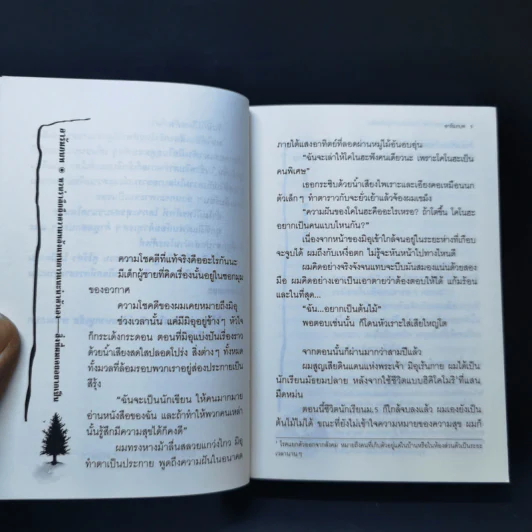 ความโชคดีที่แท้จริงคืออะไรกันนะ
มีเด็กผู้ชายที่คิดเรื่องนั้นอยู่ในซอกมุม
ของอวกาศ
ความโชคดีของผมเคยหมายถึงมิอุ
ช่วงเวลานั้น แค่มีมิอุอยู่ข้างๆ หัวใจ
ก็กระเด้งกระดอน ตอนที่มิอุแบ่งปันเรื่องราว
ด้วยน้ำเสียงสดใสปลอดโปร่ง สิ่งต่างๆ ทั้งหมด
ทั้งมวลที่ล้อมรอบพวกเราอยู่ส่องประกายเป็น
สีรุ้ง
“ฉันจะเป็นนักเขียน ให้คนมากมาย
อ่านหนังสือของฉัน และถ้าทำให้พวกคนเหล่า
นั้นรู้สึกมีความสุขได้ก็คงดี”
ผมทรงหางม้าลื่นสลวยแกว่งไกว มิอุ
ทำตาเป็นประกาย พูดถึงความฝันในอนาคต
ภายใต้แสงอาทิตย์ที่ลอดผ่านหมู่ไม้อันอบอุ่น
“ฉันจะเล่าให้โคโนฮะฟังคนเดียวนะ เพราะโคโนฮะเป็น
คนพิเศษ”
เธอกระซิบด้วยน้ำเสียงไพเราะและเอียงคอเหมือนนก
ตัวเล็กๆ ทำตาราวกับจะยั่วเย้าแล้วจ้องผมเขม็ง
“ความฝันของโคโนฮะคืออะไรเหรอ? ถ้าโตขึ้น โคโนฮะ
อยากเป็นคนแบบไหนกัน?”
เนื่องจากหน้าของมิอุเข้าใกล้จนอยู่ในระยะห่างที่เกือบ
จะจูบได้ ผมถึงกับเหงื่อตก ไม่รู้จะหันหน้าไปทางไหนดี
ผมคิดอย่างจริงจังจนแทบจะบีบมันสมองแน่นด้วยสอง
มือ ผมคิดอย่างเอาเป็นเอาตายว่าต้องตอบให้ได้ แก้มร้อน
และในที่สุด...
“ฉัน...อยากเป็นต้นไม้”
พอตอบเช่นนั้น ก็โดนหัวเราะใส่เสียใหญ่โต
จากตอนนั้นก็ผ่านมากว่าสามปีแล้ว
ผมสูญเสียดินแดนแห่งพระเจ้า มิอุเร้นกาย ผมได้เป็น
นักเรียนมัธยมปลาย หลังจากใช้ชีวิตแบบฮิคิโคโมริ¹ที่แสน
มืดหม่น
ตอนนี้ชีวิตนักเรียนม.5 ก็ใกล้จบลงแล้ว ผมเองยังเป็น
ต้นไม้ไม่ได้ ขณะที่ยังไม่เข้าใจความหมายของความสุข ผมก็